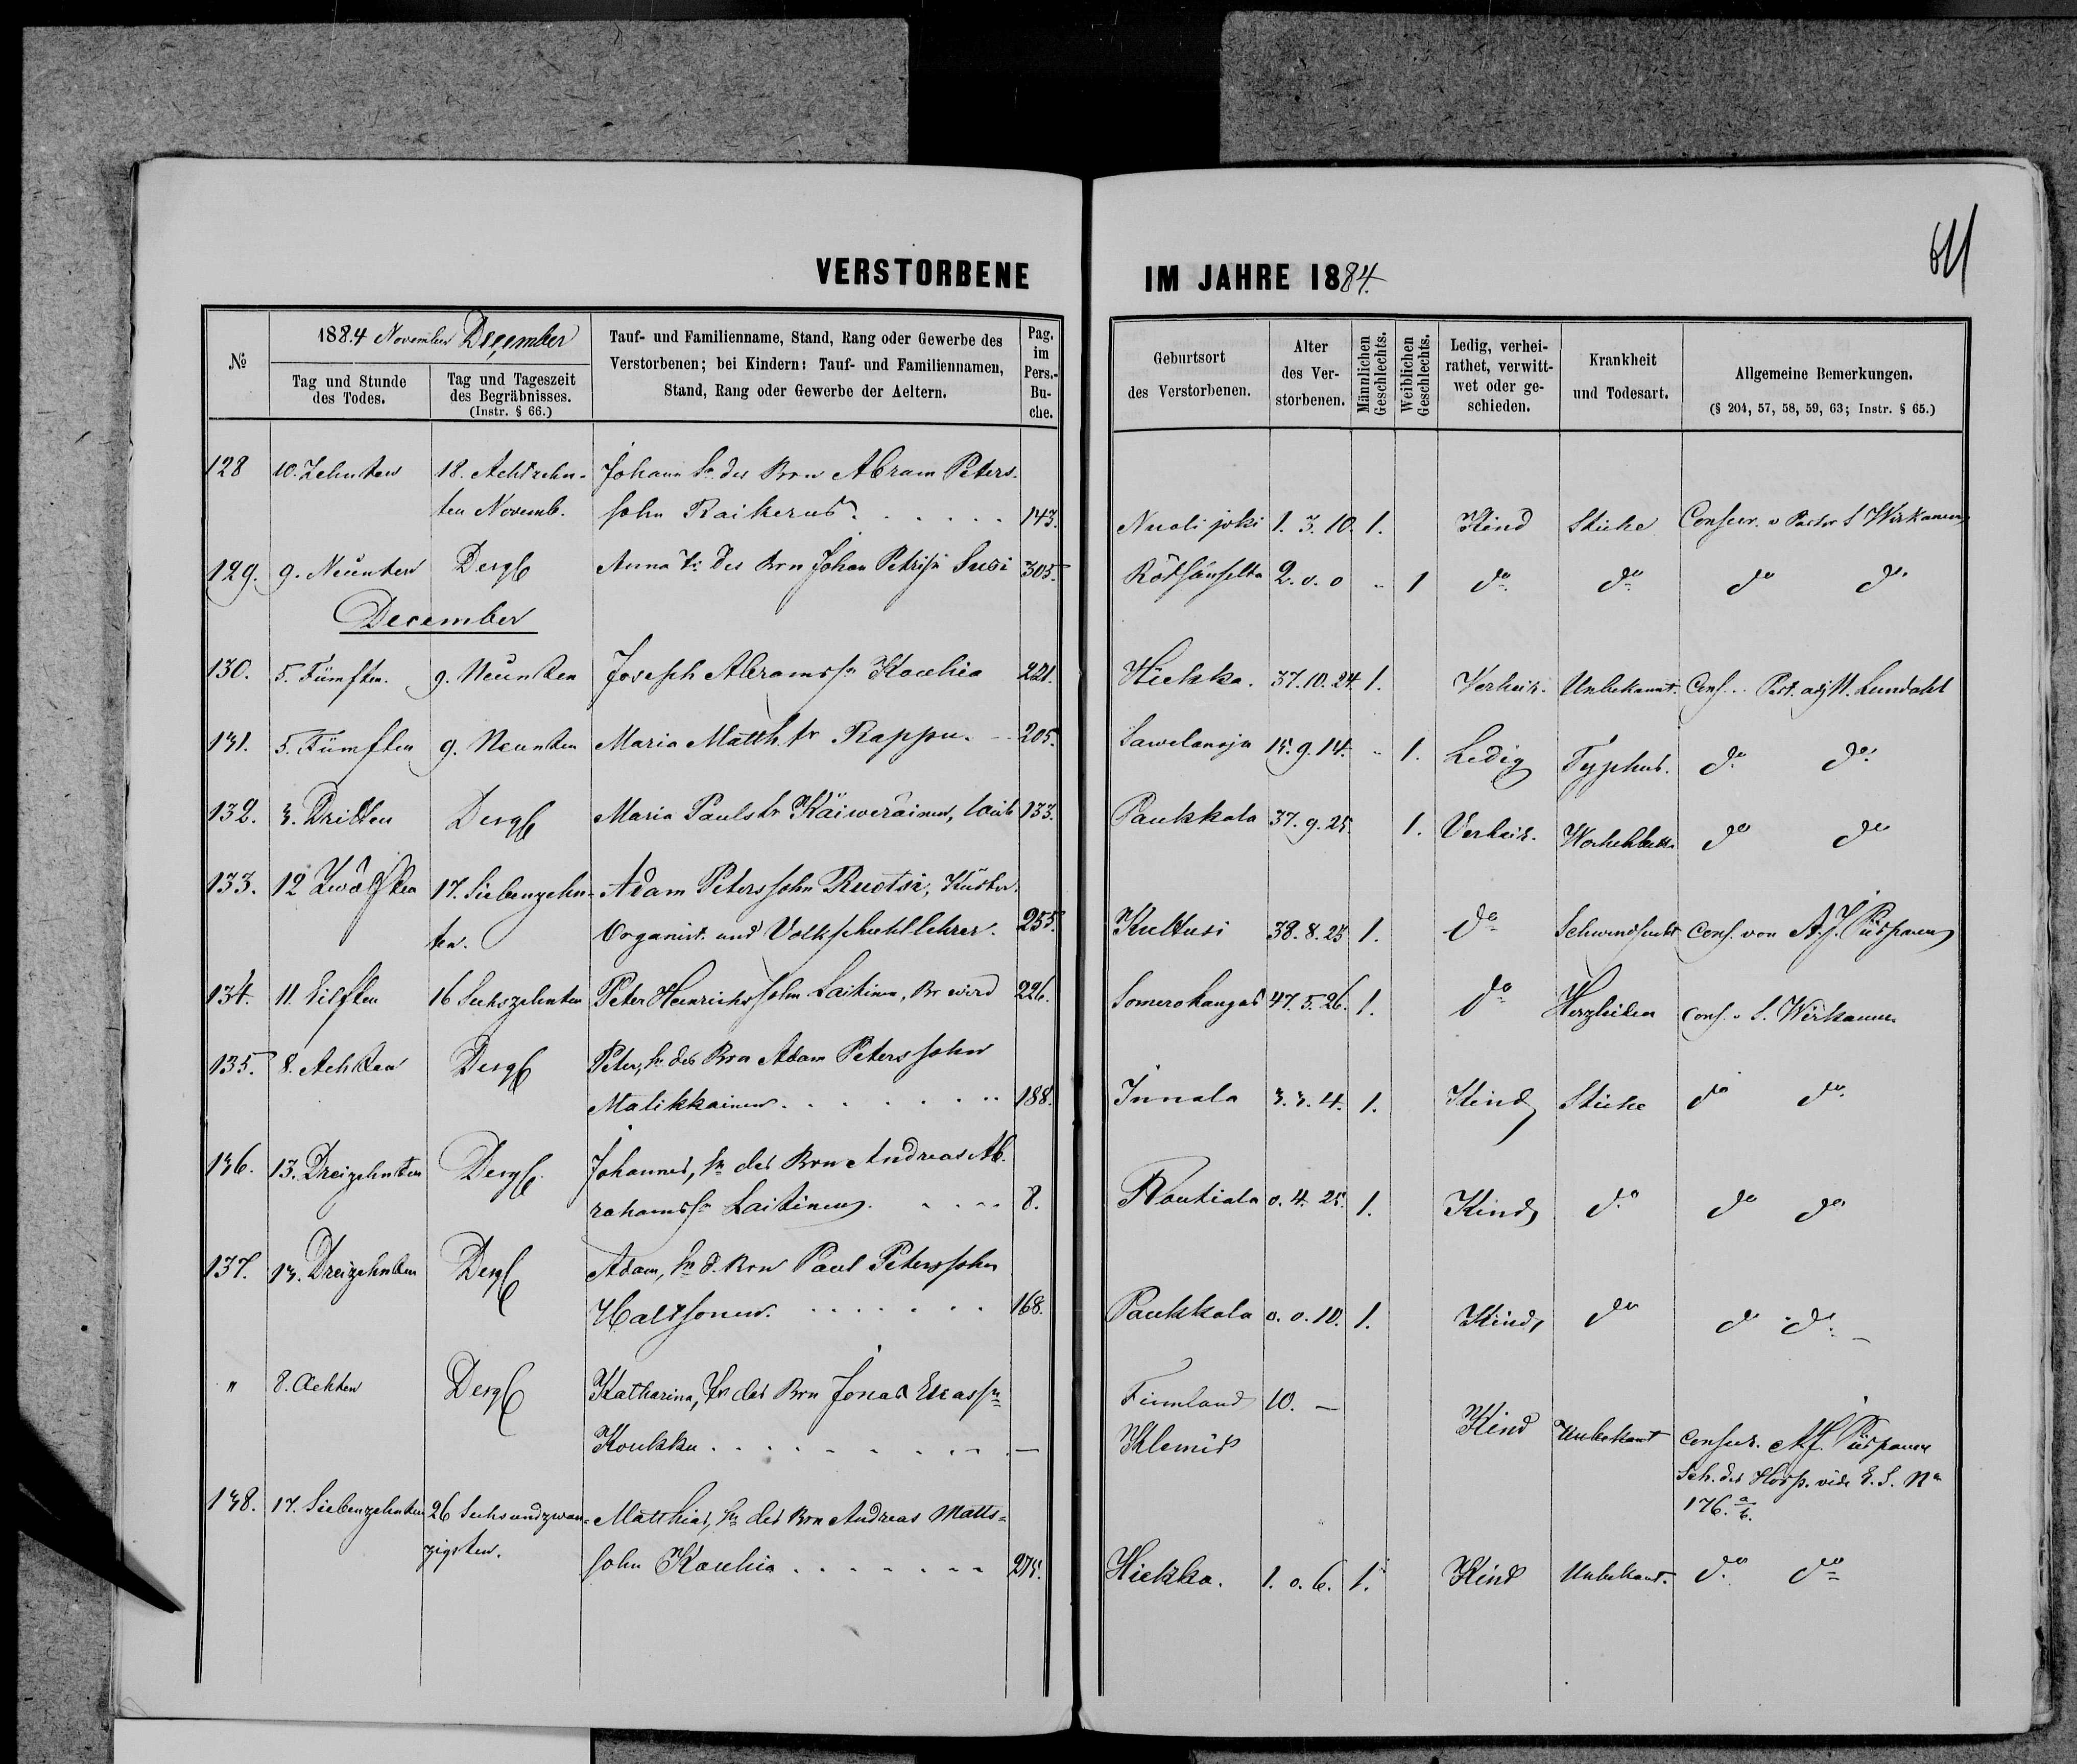 VERSTORBENE IM JAHRE 1884.
61
№
1884 November December
Tag und Stunde
des Todes.
Tag und Tageszeit
des Begräbnisses.
(Instr. § 66.)
Tauf- und Familienname, Stand, Rang oder Gewerbe des
Verstorbenen; bei Kindern: Tauf- und Familiennamen,
Stand, Rang oder Gewerbe der Aeltern.
Pag.
im
Pers.-
Bu-
che.
Geburtsort
des Verstorbenen.
Alter
des Ver-
storbenen.
Männlichen
Geschlechts.
Weiblichen
Geschlechts.
Ledig, verhei-
rathet, verwitt-
wet oder ge-
schieden.
Krankheit
und Todesart.
Allgemeine Bemerkungen.
(§ 204, 57, 58, 59, 63; Instr. § 65.)
128 10. Zehnten 18. Achtzehn- Johann Sn. des Brn Abram Peters-
ten Novemb. sohn Raikerus 143. Nuoli joki 1. 3. 10. 1. Kind Stiche Conseer. v Pastor S Wirkanen
129. 9. Neunten Dergl Anna Tr. des Brn Johan Petrisn Susi 305. Rötsänselta 2. 0. 0 „ 1 do do do do
December
130. 5. Fümften. 9. Neunten Joseph Abramssn Kouhia 221. Hiekka. 37. 10. 24 1. Verheir. Unbekannt. Cons. Past. adj. Lundahl
131. 5. Fümften 9. Neunten Maria Matth. tr Rappu. 205. Sawelanoja 15. 9. 14. „ 1. Ledig Typhus. do do
132. 3. Dritten Dergl Maria Paulstr Käiweräinen, 133. Paukkola 37. 9. 25. 1. Verheir. do do
133. 12 Zwölften 17. Siebenzehn- Adam Peterssohn Ruotsi, Küster
ten. Organist. und Volkschuhllehrer. 255. Kuttusi 38. 8. 25 1. do Schwindsucht Cons. von A. J. Piispanen
134. 11. Eilften 16 Sechszehnten Peter Heinrichssohn Laitinen, Br 226. Somerokangas 47. 5. 26. 1. do Herzleiden cons. v. S. Wirkanen
135. 8. Achten Dergl Peter, Sn des Brn Adam Peterssohn
Malikkainen 188. Innala 3. 3. 4. 1. Kind Stiche do do
136. 13. Dreizehnten Dergl. Johannes, Sn des Brn Andreas Ab-
rahamssn Laitinen 8. Routiala 0. 4. 25. 1. Kind do do do
137. 13. Dreizehnten Dergl Adam, Sn d. Brn Paul Peterssohn
Haltsonen 168. Paukkola 0. 0. 10. 1. Kind, do do do
" 8. Achten Dergl Katharina, Tr des Brn Jonas
Koukku — Finnland 10. —
Klemis Kind Unbekant Conseer. A. J. Piispanen
Sch. des Hosp. vide E. S. No
176. a/b.
138. 17. Siebenzehnten 26 Sechsundzwan- Matthias, Sn des Brn Andreas Matts-
zigsten. sohn Kouhia 275. Hiekka. 1. 0. 6. 1. Kind Unbekant. do do